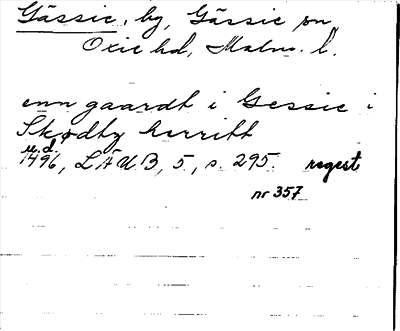 Gässie, by, Gässie sn
Oxie hd, Malm. l.
enn gaardt i Gessie i
Skødby herritt
u.d.
1496, LÄUB, 5, s. 295. regest
nr 357